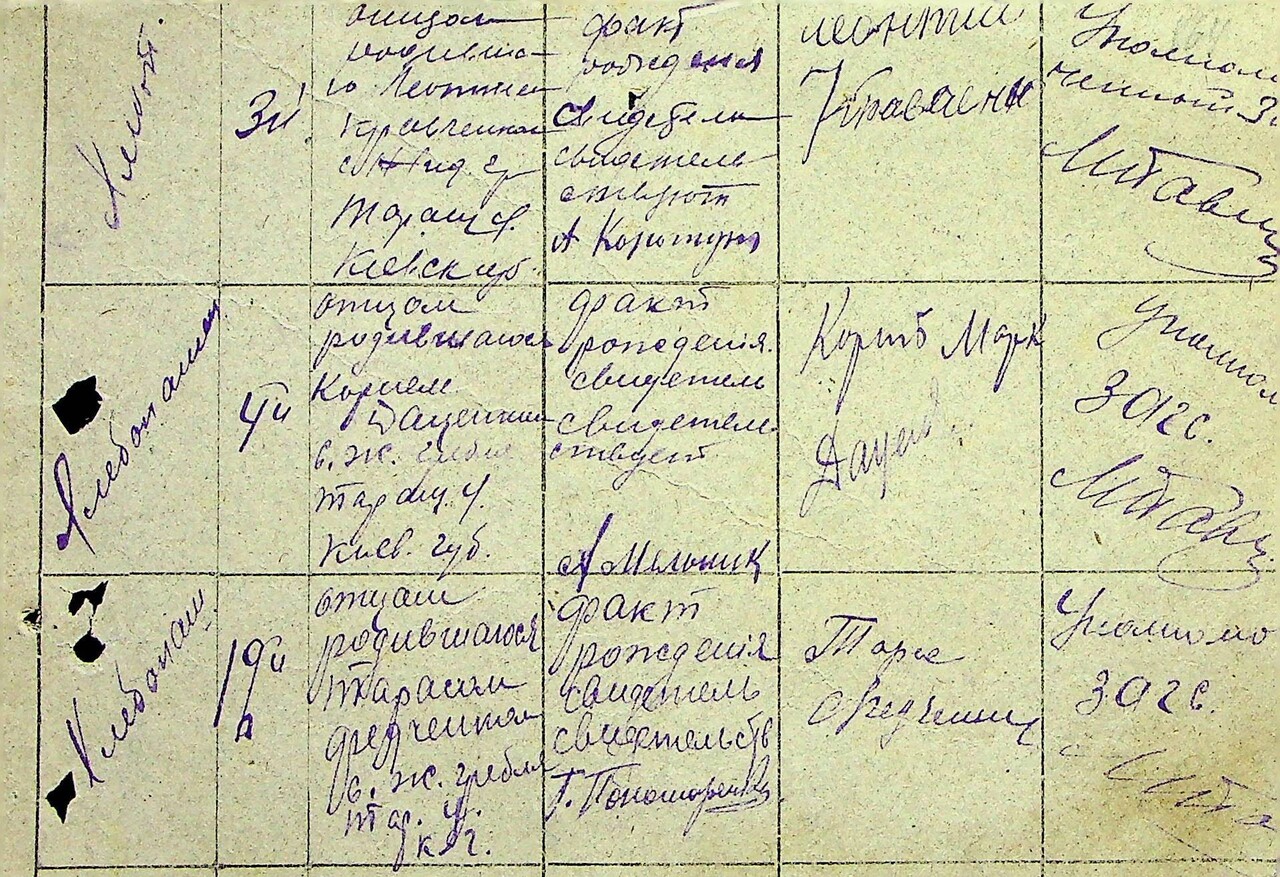 3й
отцом
родивша-
го Леонтием
Кравченком
Таращ. у.
Киевск. губ.
факт
рождения
Свидетель
свидетель
ствует
А Коротун
Леонтий
Кравченк
Уполномо
ченный За
Хлебопашец
4й
отцом
родившагося
Корнем
Даценком
с. ж. гребля
таращ. у.
Киев. губ.
факт
рожденія.
свидетель
свидетель
ствует
А Мельник
Корнь Марк
Даценк
Уполном
ЗАГС.
Хлебопаш
19й
отцом
родившагося
Тарасом
Федченком
с. ж. гребля
тар. у.
к. г.
факт
рожденія
свидетель
свидетельств
Г. Пономаренко
Тарас
Федченк
Уполномо
ЗАГС.